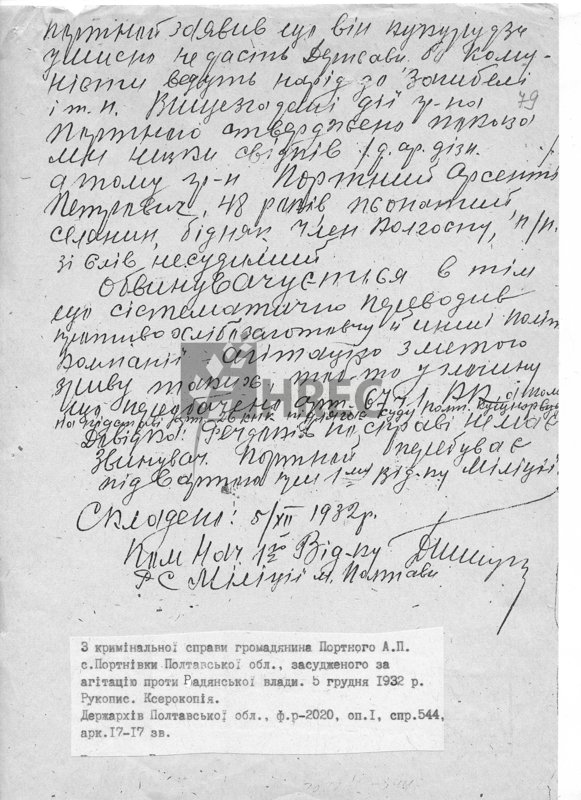 Портной заявив що він кукурудзи
умисно не дасть Державі бо кому-
ністи ведуть нарід до загибелі
і т. п. Вищезгадані дії гр-на 79
Портного стверджено показа
ми низки свідків /д. ар. дізн. /
а тому гр-н Портний Арсентій
Петрович, 48 років, жонатий
селянин, бідняк, член Колгоспу, п/п.
зі слів несудимий
Обвинувачується в тім
що сістематично переводив
противо хлібозаготовчу й инші політ
компанії агітацію з метою
зриву таких, тобто у злочину
що передбачено арт.
Довідка: Речдоказів по справі немає
Звинувач. Портний перебуває
під вартою при 1му Від-ку Міліції.
Складено: 5/XII 1932 р.
Пом Нач. 1го Від-ку
РС Міліції м. Полтави
HREC
З кримінальної справи громадянина Портного А.П.
с.Портнівки Полтавської обл., засудженого за
агітацію проти Радянської влади. 5 грудня 1932 р.
Рукопис. Ксерокопія.
Держархів Полтавської обл., ф.р-2020, оп.I, спр.544,
арк.I7-I7 зв.